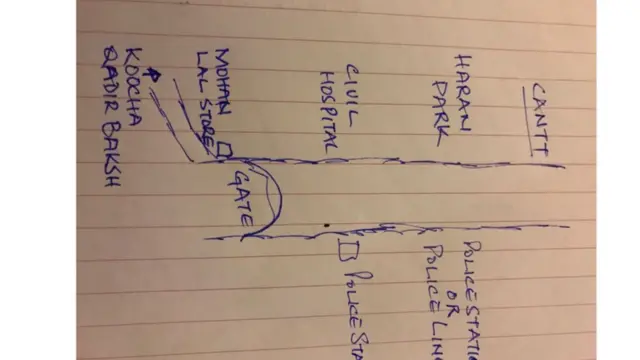 CANTT
HARAN
PARK
CIVIL
HOSPITAL
MOHAN
LAL STORE
KOOCHA
QADIR BAKSH
GATE
POLICE STATION
OR
POLICE LIN
POLICE STA